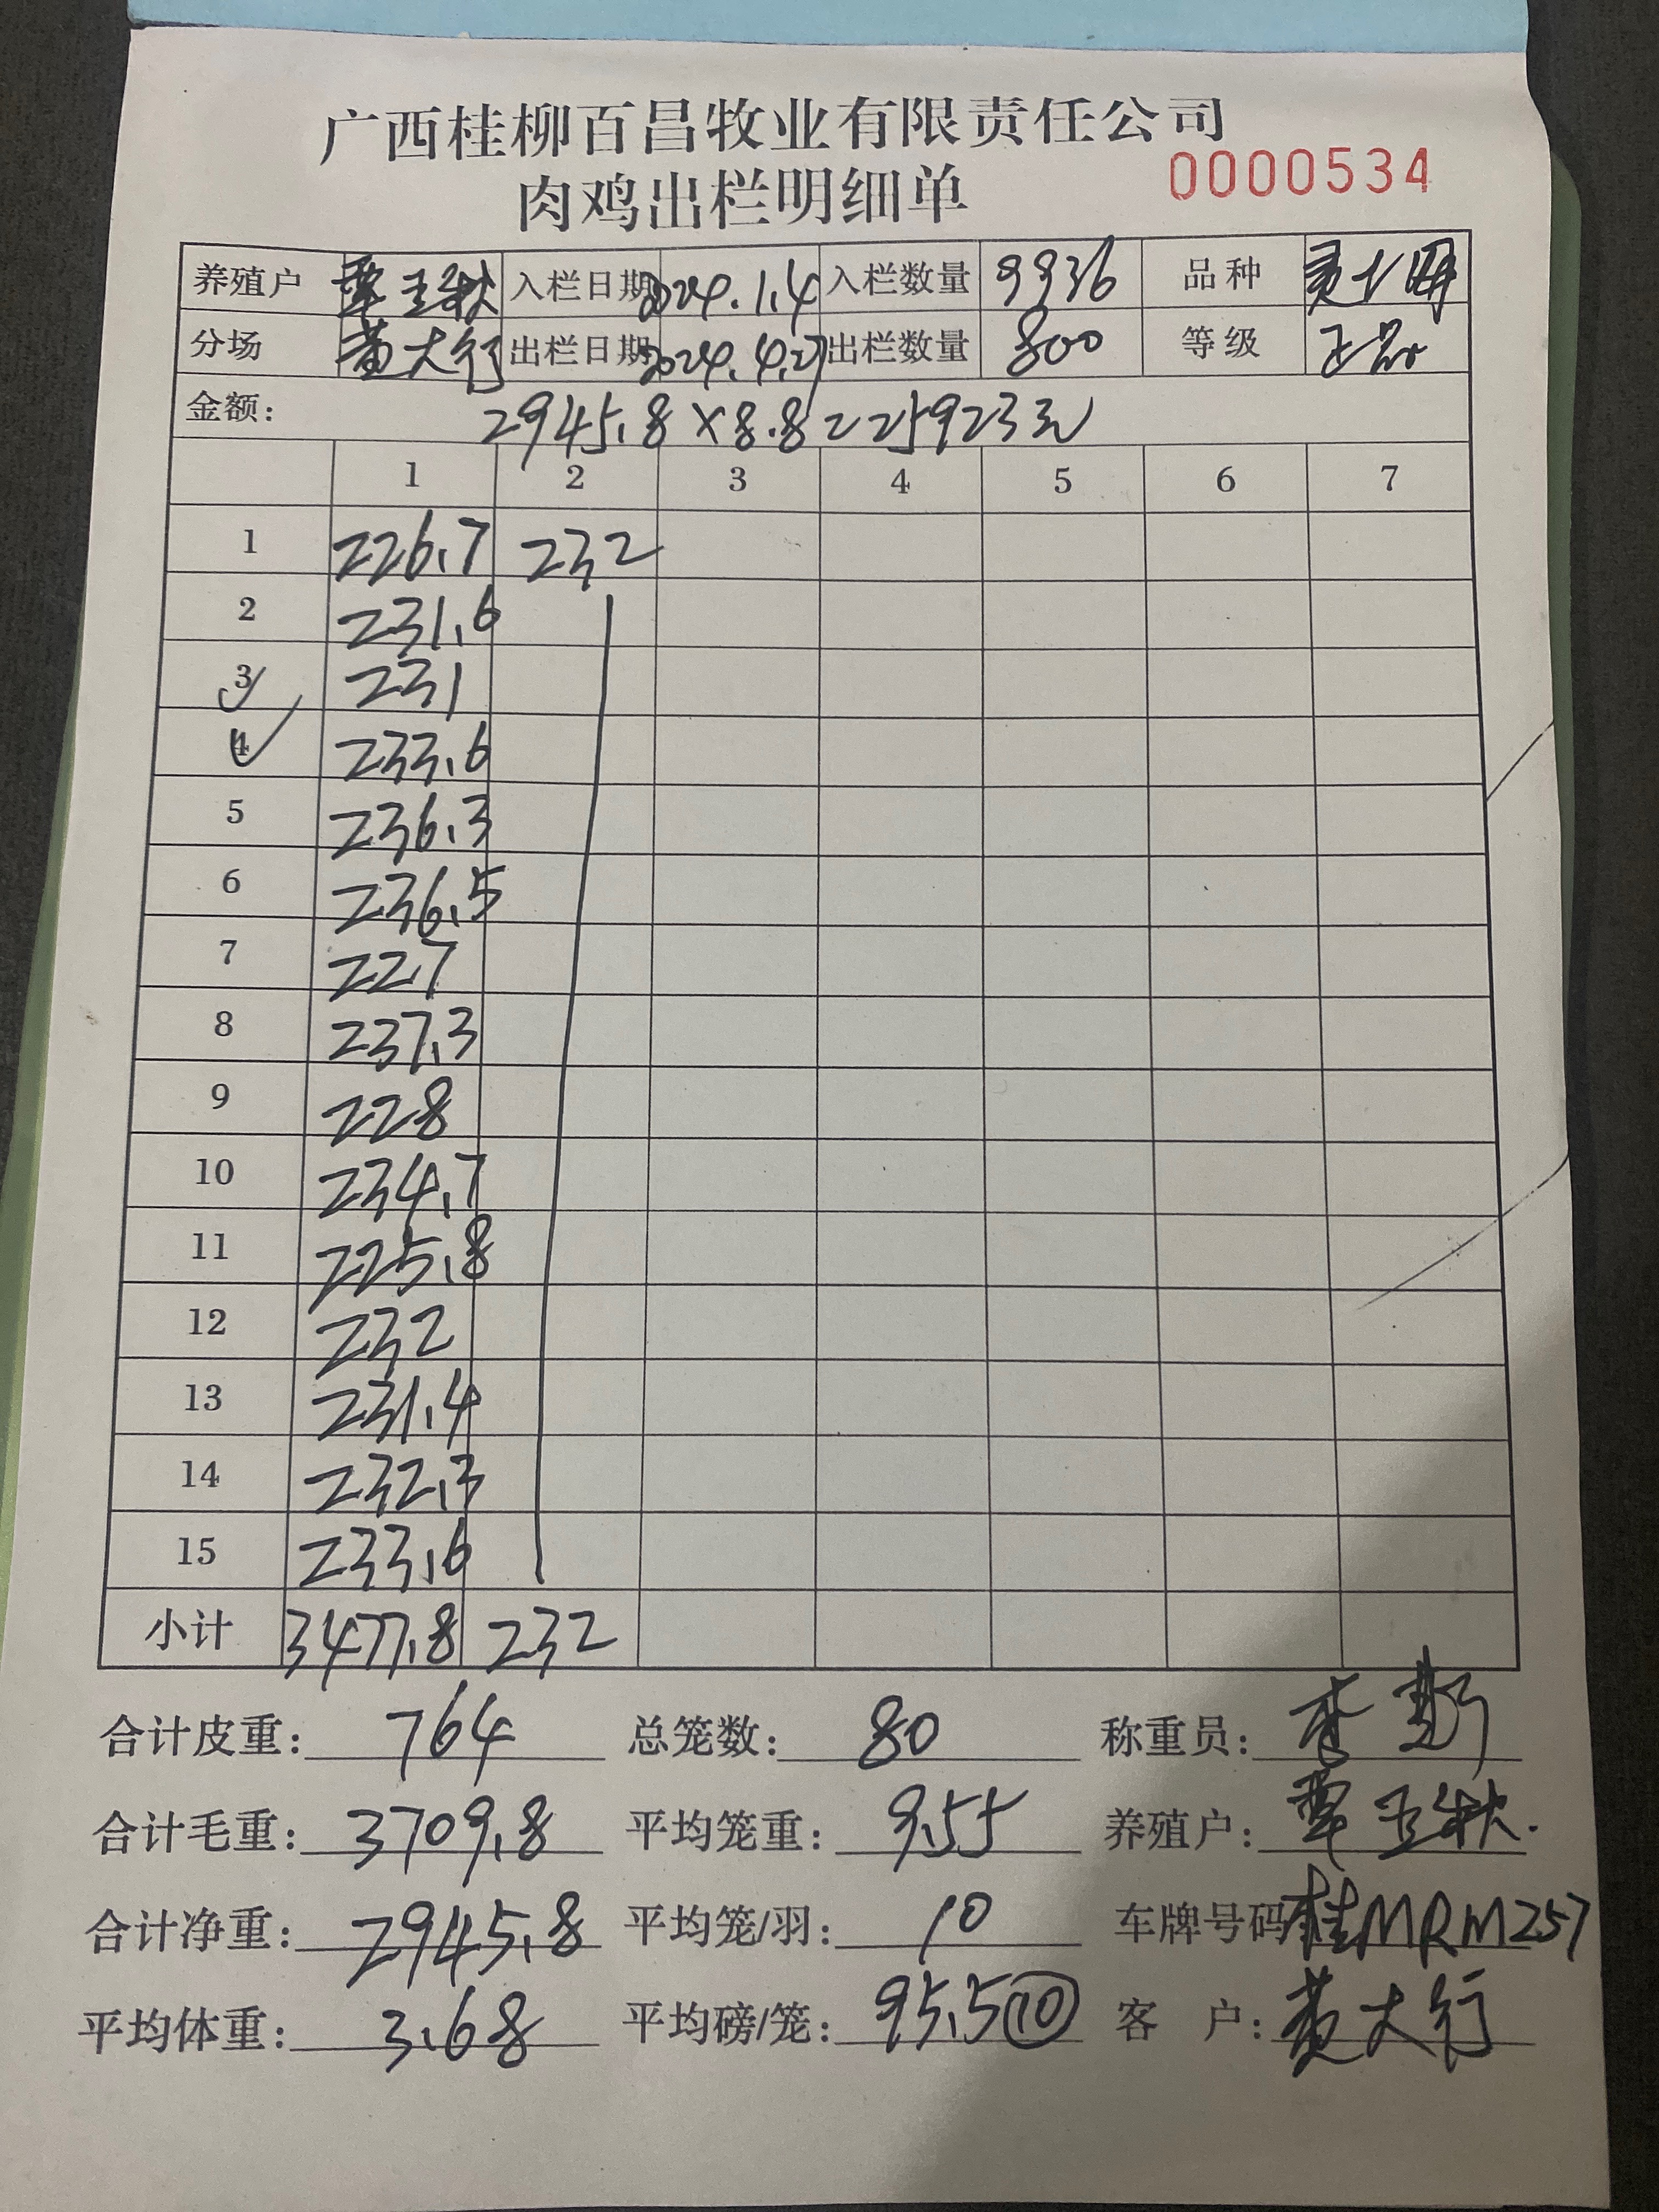 广西桂柳百昌牧业有限责任公司
肉鸡出栏明细单 0000534
养殖户 覃玉秋 入栏日期 2024.1.4 入栏数量 9936 品种
分场 黄大行 出栏日期 2024.4.27 出栏数量 800 等级 正品
金额: 2945.8×8.8=25923元
1 2 3 4 5 6 7
1 226.7 232
2 231.6
3 231
4 233.6
5 236.3
6 236.5
7 227
8 237.3
9 228
10 234.7
11 225.8
12 232
13 231.4
14 232.3
15 233.6
小计 3477.8 232
合计皮重: 764 总笼数: 80 称重员: 李
合计毛重: 3709.8 平均笼重: 9.55 养殖户: 覃玉秋.
合计净重: 2945.8 平均笼/羽: 10 车牌号码 桂MRM257
平均体重: 3.68 平均磅/笼: 95.5⑩ 客 户: 黄大行